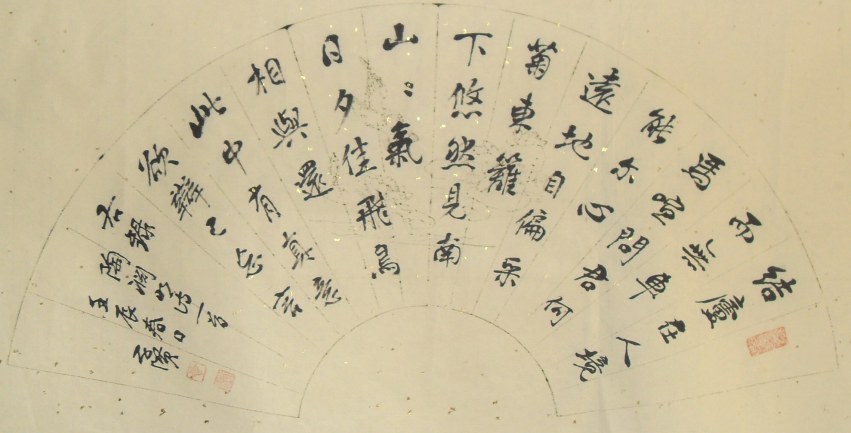 結廬在人境
而無車
馬喧問君何
能尔心
遠地自偏采
菊東籬
下悠然見南
山〻氣
日夕佳飛鳥
相與還
此中有真意
欲辯已忘言
右錄
陶淵明詩一首
壬辰春日